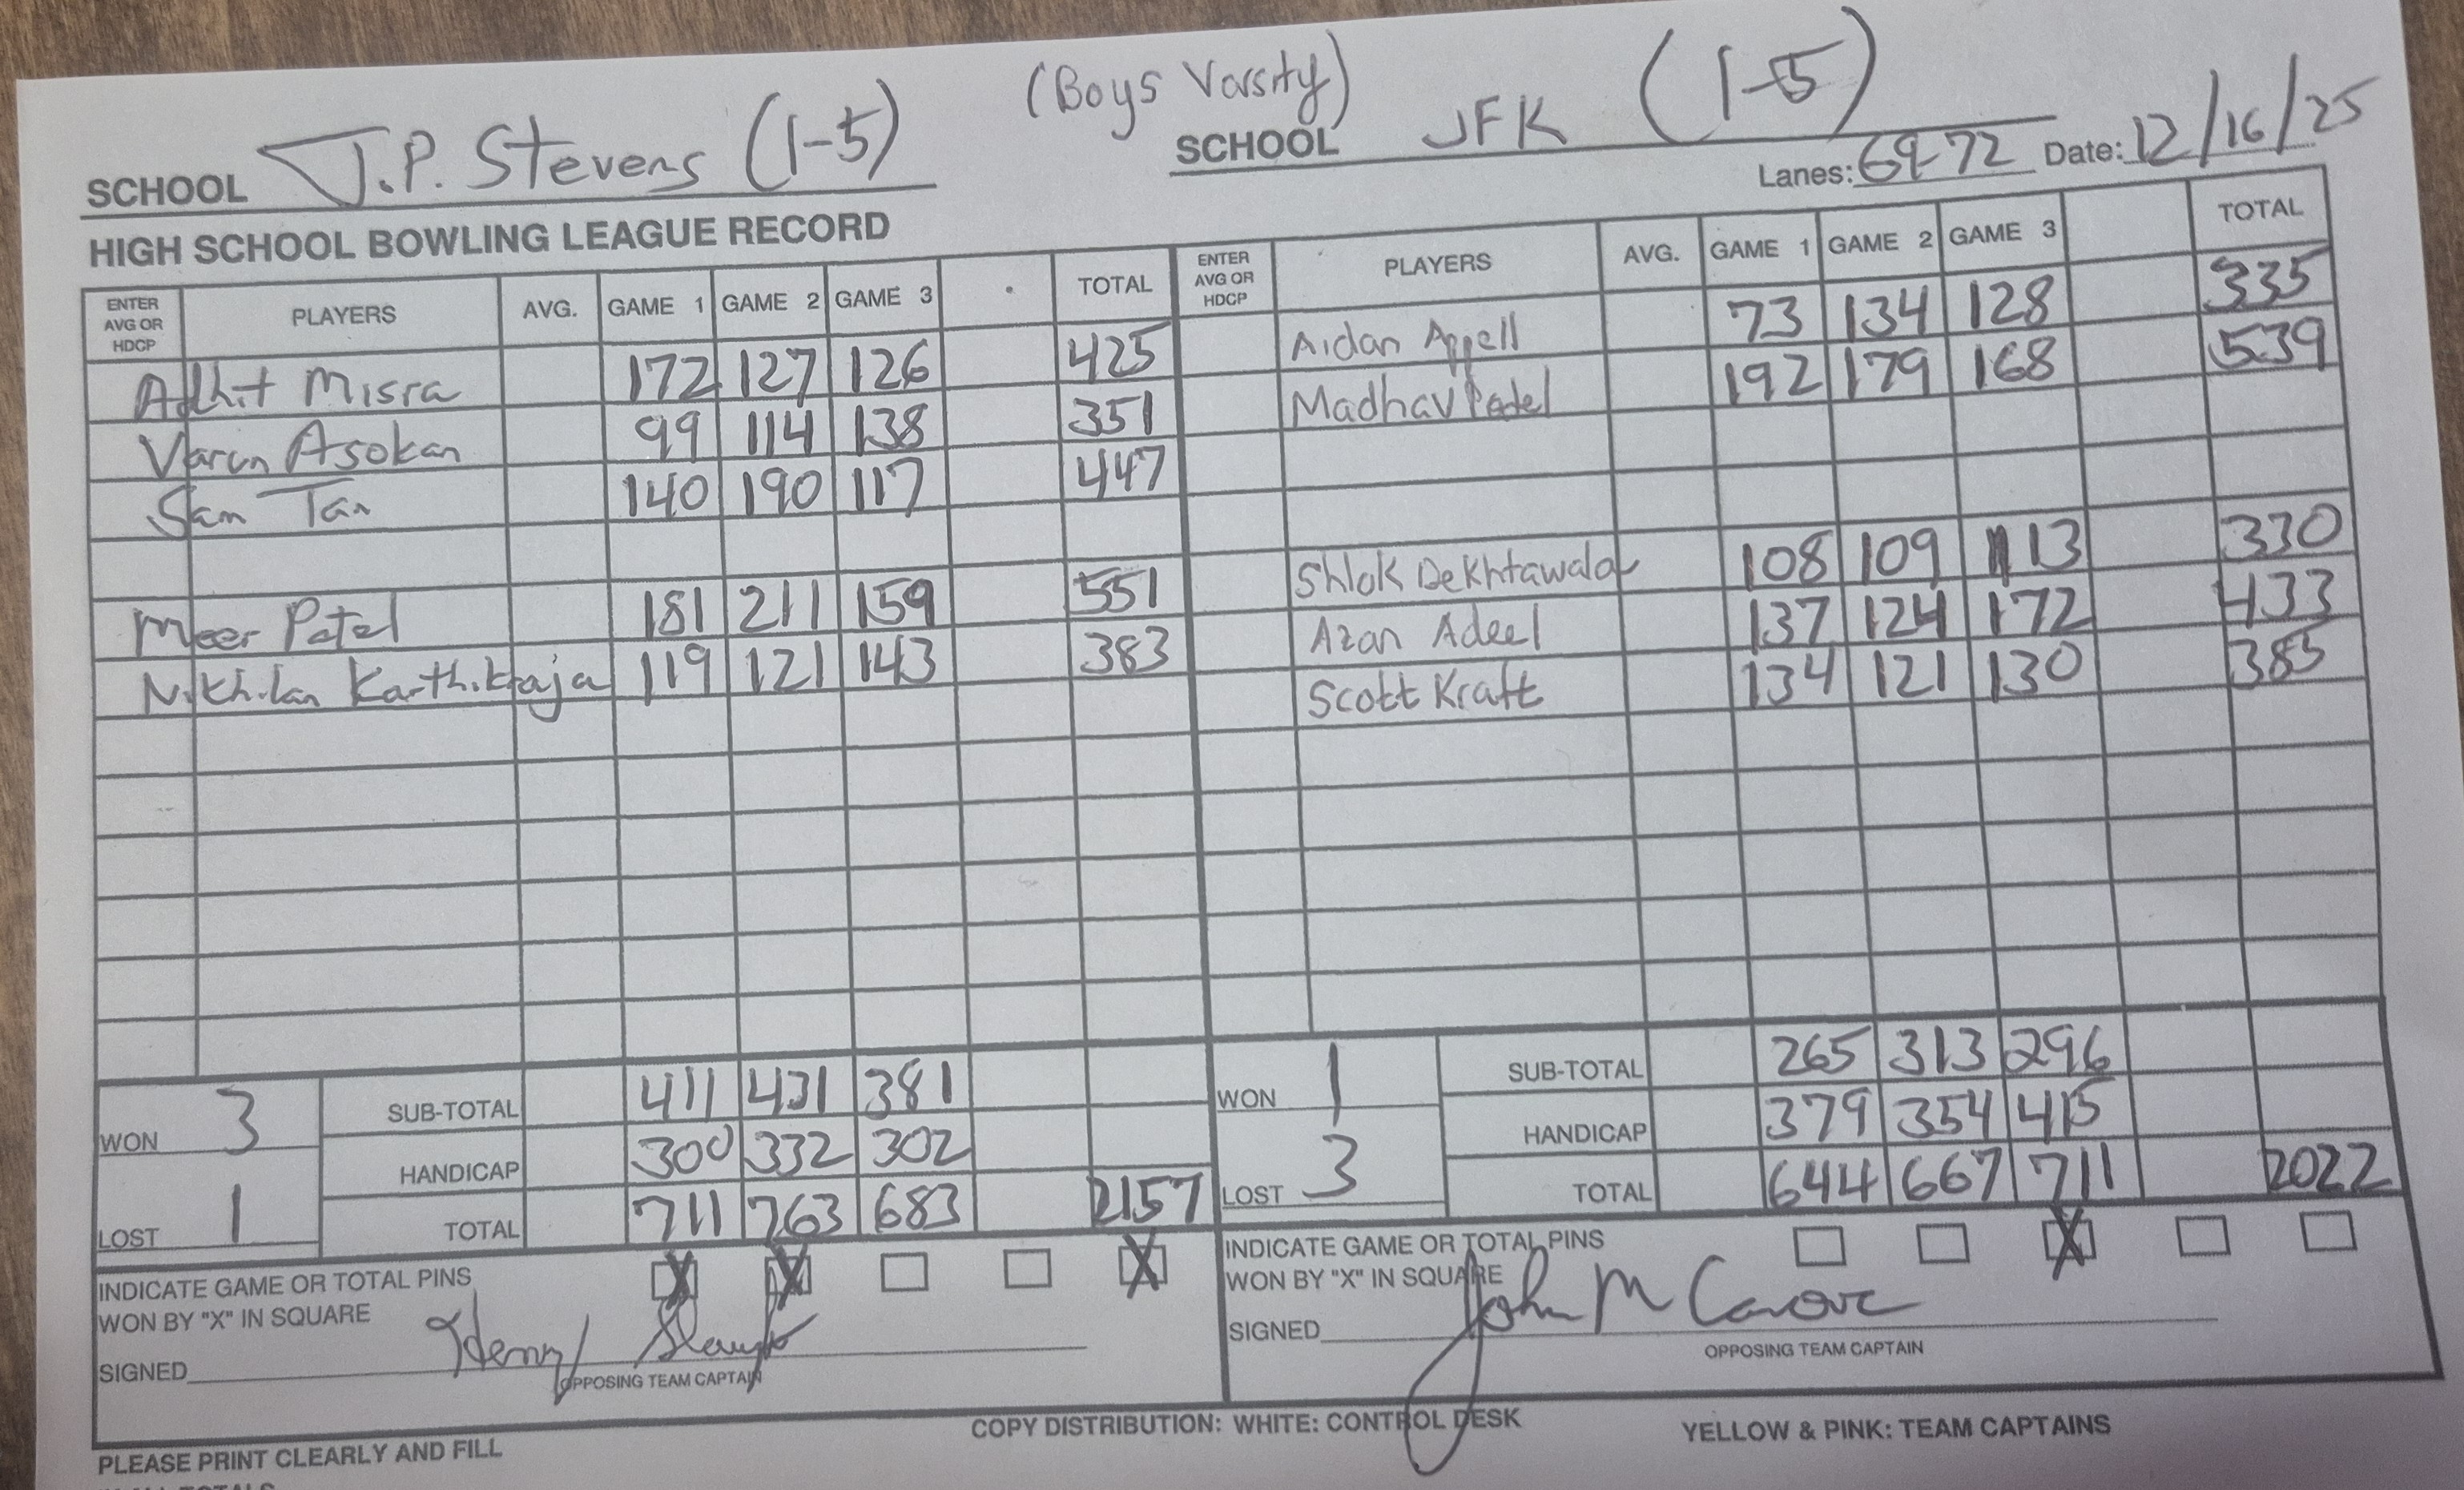 (Boys Varsity)
SCHOOL J.P. Stevens (1-5) SCHOOL JFK (1-5)
Lanes: 69-72 Date: 12/16/25
HIGH SCHOOL BOWLING LEAGUE RECORD
ENTER AVG OR HDCP PLAYERS AVG. GAME 1 GAME 2 GAME 3 TOTAL
Adhit Misra 172 127 126 425
Varun Asokan 99 114 138 351
Sam Tan 140 190 117 447
Meer Patel 181 211 159 551
Nikhilan Karthikraja 119 121 143 383
WON 3
LOST 1
SUB-TOTAL 411 431 381
HANDICAP 300 332 302
TOTAL 711 763 683 2157
INDICATE GAME OR TOTAL PINS
WON BY "X" IN SQUARE X X X
SIGNED Henry
OPPOSING TEAM CAPTAIN
ENTER AVG OR HDCP PLAYERS AVG. GAME 1 GAME 2 GAME 3 TOTAL
Aidan Appell 73 134 128 335
Madhav Patel 192 179 168 539
Shlok Dekhtawala 108 109 113 330
Azan Adeel 137 124 172 433
Scott Kraft 134 121 130 385
WON 1
LOST 3
SUB-TOTAL 265 313 296
HANDICAP 379 354 415
TOTAL 644 667 711 2022
INDICATE GAME OR TOTAL PINS
WON BY "X" IN SQUARE X
SIGNED John M
OPPOSING TEAM CAPTAIN
COPY DISTRIBUTION: WHITE: CONTROL DESK YELLOW & PINK: TEAM CAPTAINS
PLEASE PRINT CLEARLY AND FILL